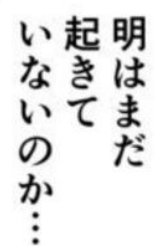 明はまだ
起きて
いないのか…